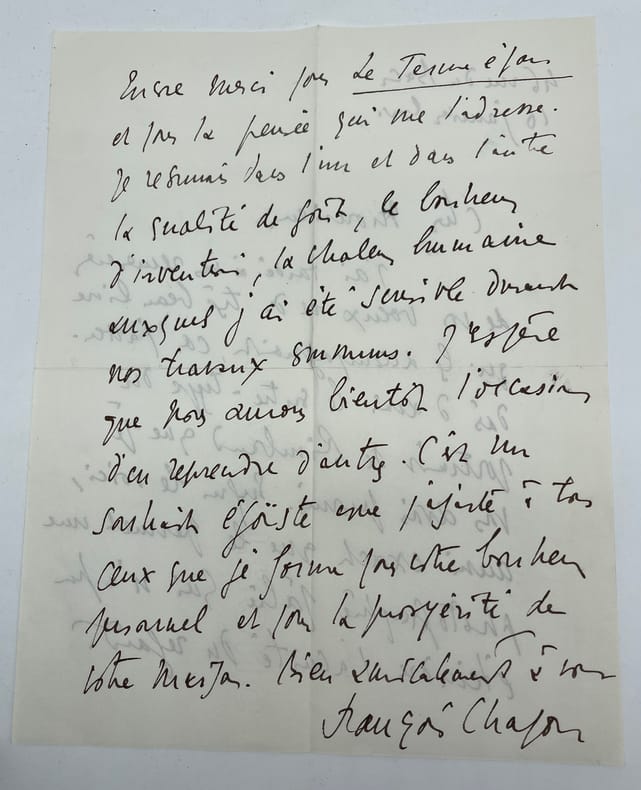 Encore merci pour Le Terme épars
et pour la pensée qui me l'adresse.
Je reconnais dans l'un et dans l'autre
la qualité de goût, le bonheur
d'invention, la chaleur humaine
auxquels j'ai été sensible durant
nos travaux communs. J'espère
que nous aurons bientôt l'occasion
d'en reprendre d'autres. C'est un
souhait égoïste que j'ajoute à tous
ceux que je forme pour votre bonheur
personnel et pour la prospérité de
votre maison. Bien amicalement à vous
François Chapon